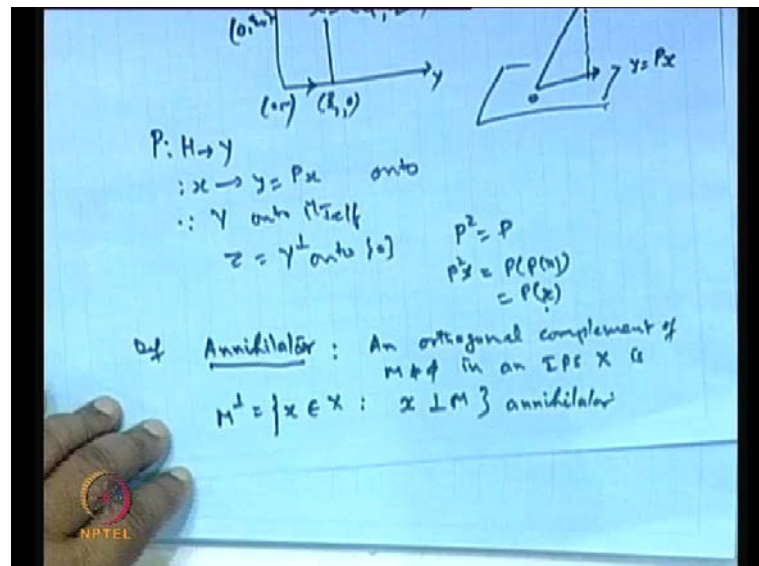 y
y = Px
P: H → Y
: x → y = Px onto
∴ Y onto itself
z = Y⊥ onto {0}
P² = P
P²x = P(P(x))
= P(x)
Def Annihilator : An orthogonal complement of
M ≠ φ in an IPS X is
M⊥ = {x ∈ X : x ⊥ M} annihilator
NPTEL